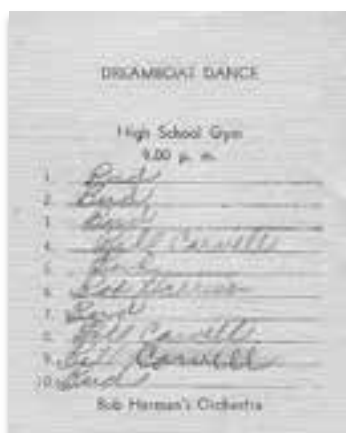 DREAMBOAT DANCE
High School Gym
9.00 p. m.
1. Bud
2. Bud
3. Bud
4. Bill Carvell
5. Bud
6. Harrison
7. Bud
8. Bill Carvell
9. Bill Carvell
10. Bud
Bob Herman's Orchestra